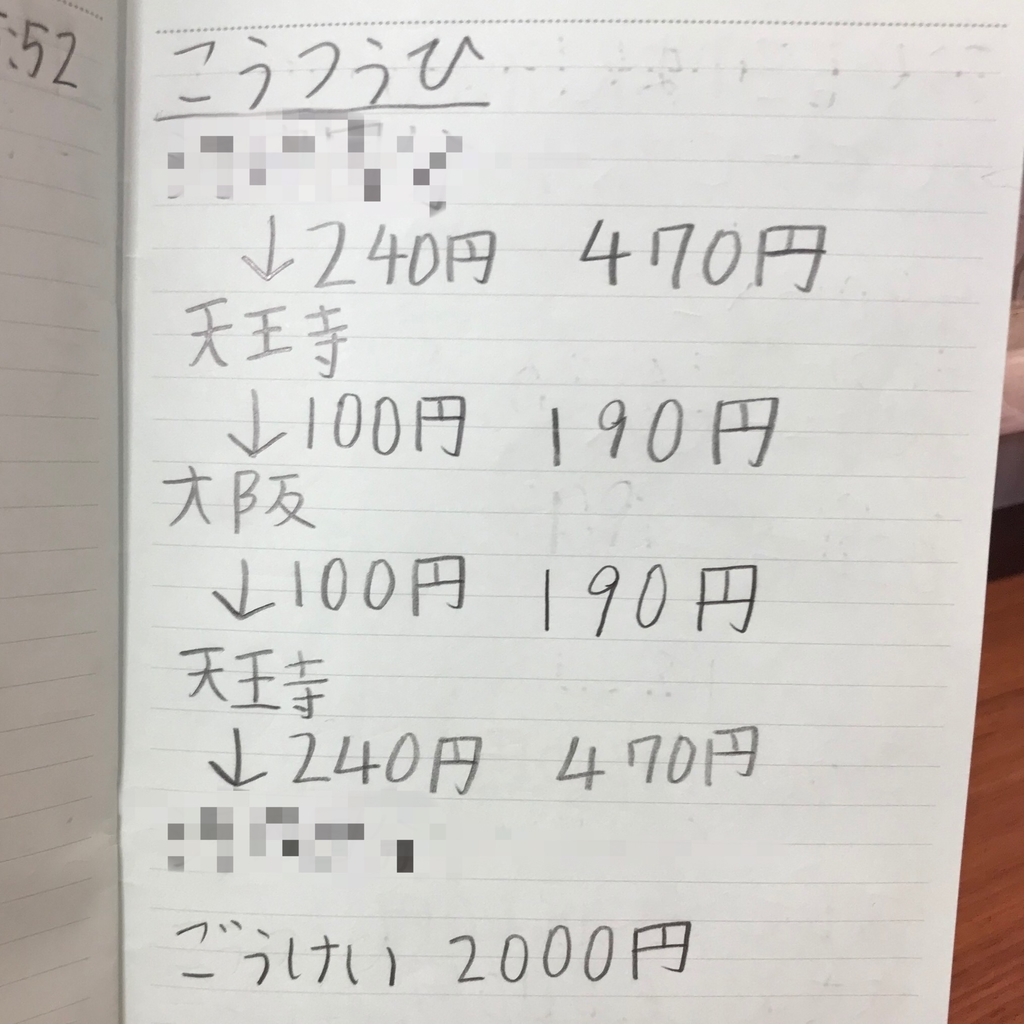 :52
こうつうひ
↓240円 470円
天王寺
↓100円 190円
大阪
↓100円 190円
天王寺
↓240円 470円
ごうけい 2000円